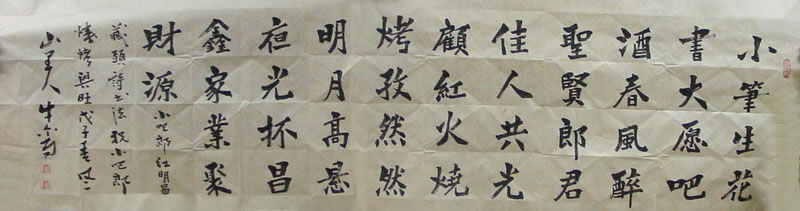 小筆生花
書大愿吧
酒春風醉
聖賢郎君
佳人共光
顧紅火燒
烤孜然然
明月高悬
夜光杯昌
鑫家業聚
財源
小吧郎红明昌
藏頭詩书法投小吧郎
燒烤興旺戊子春
山里人牛